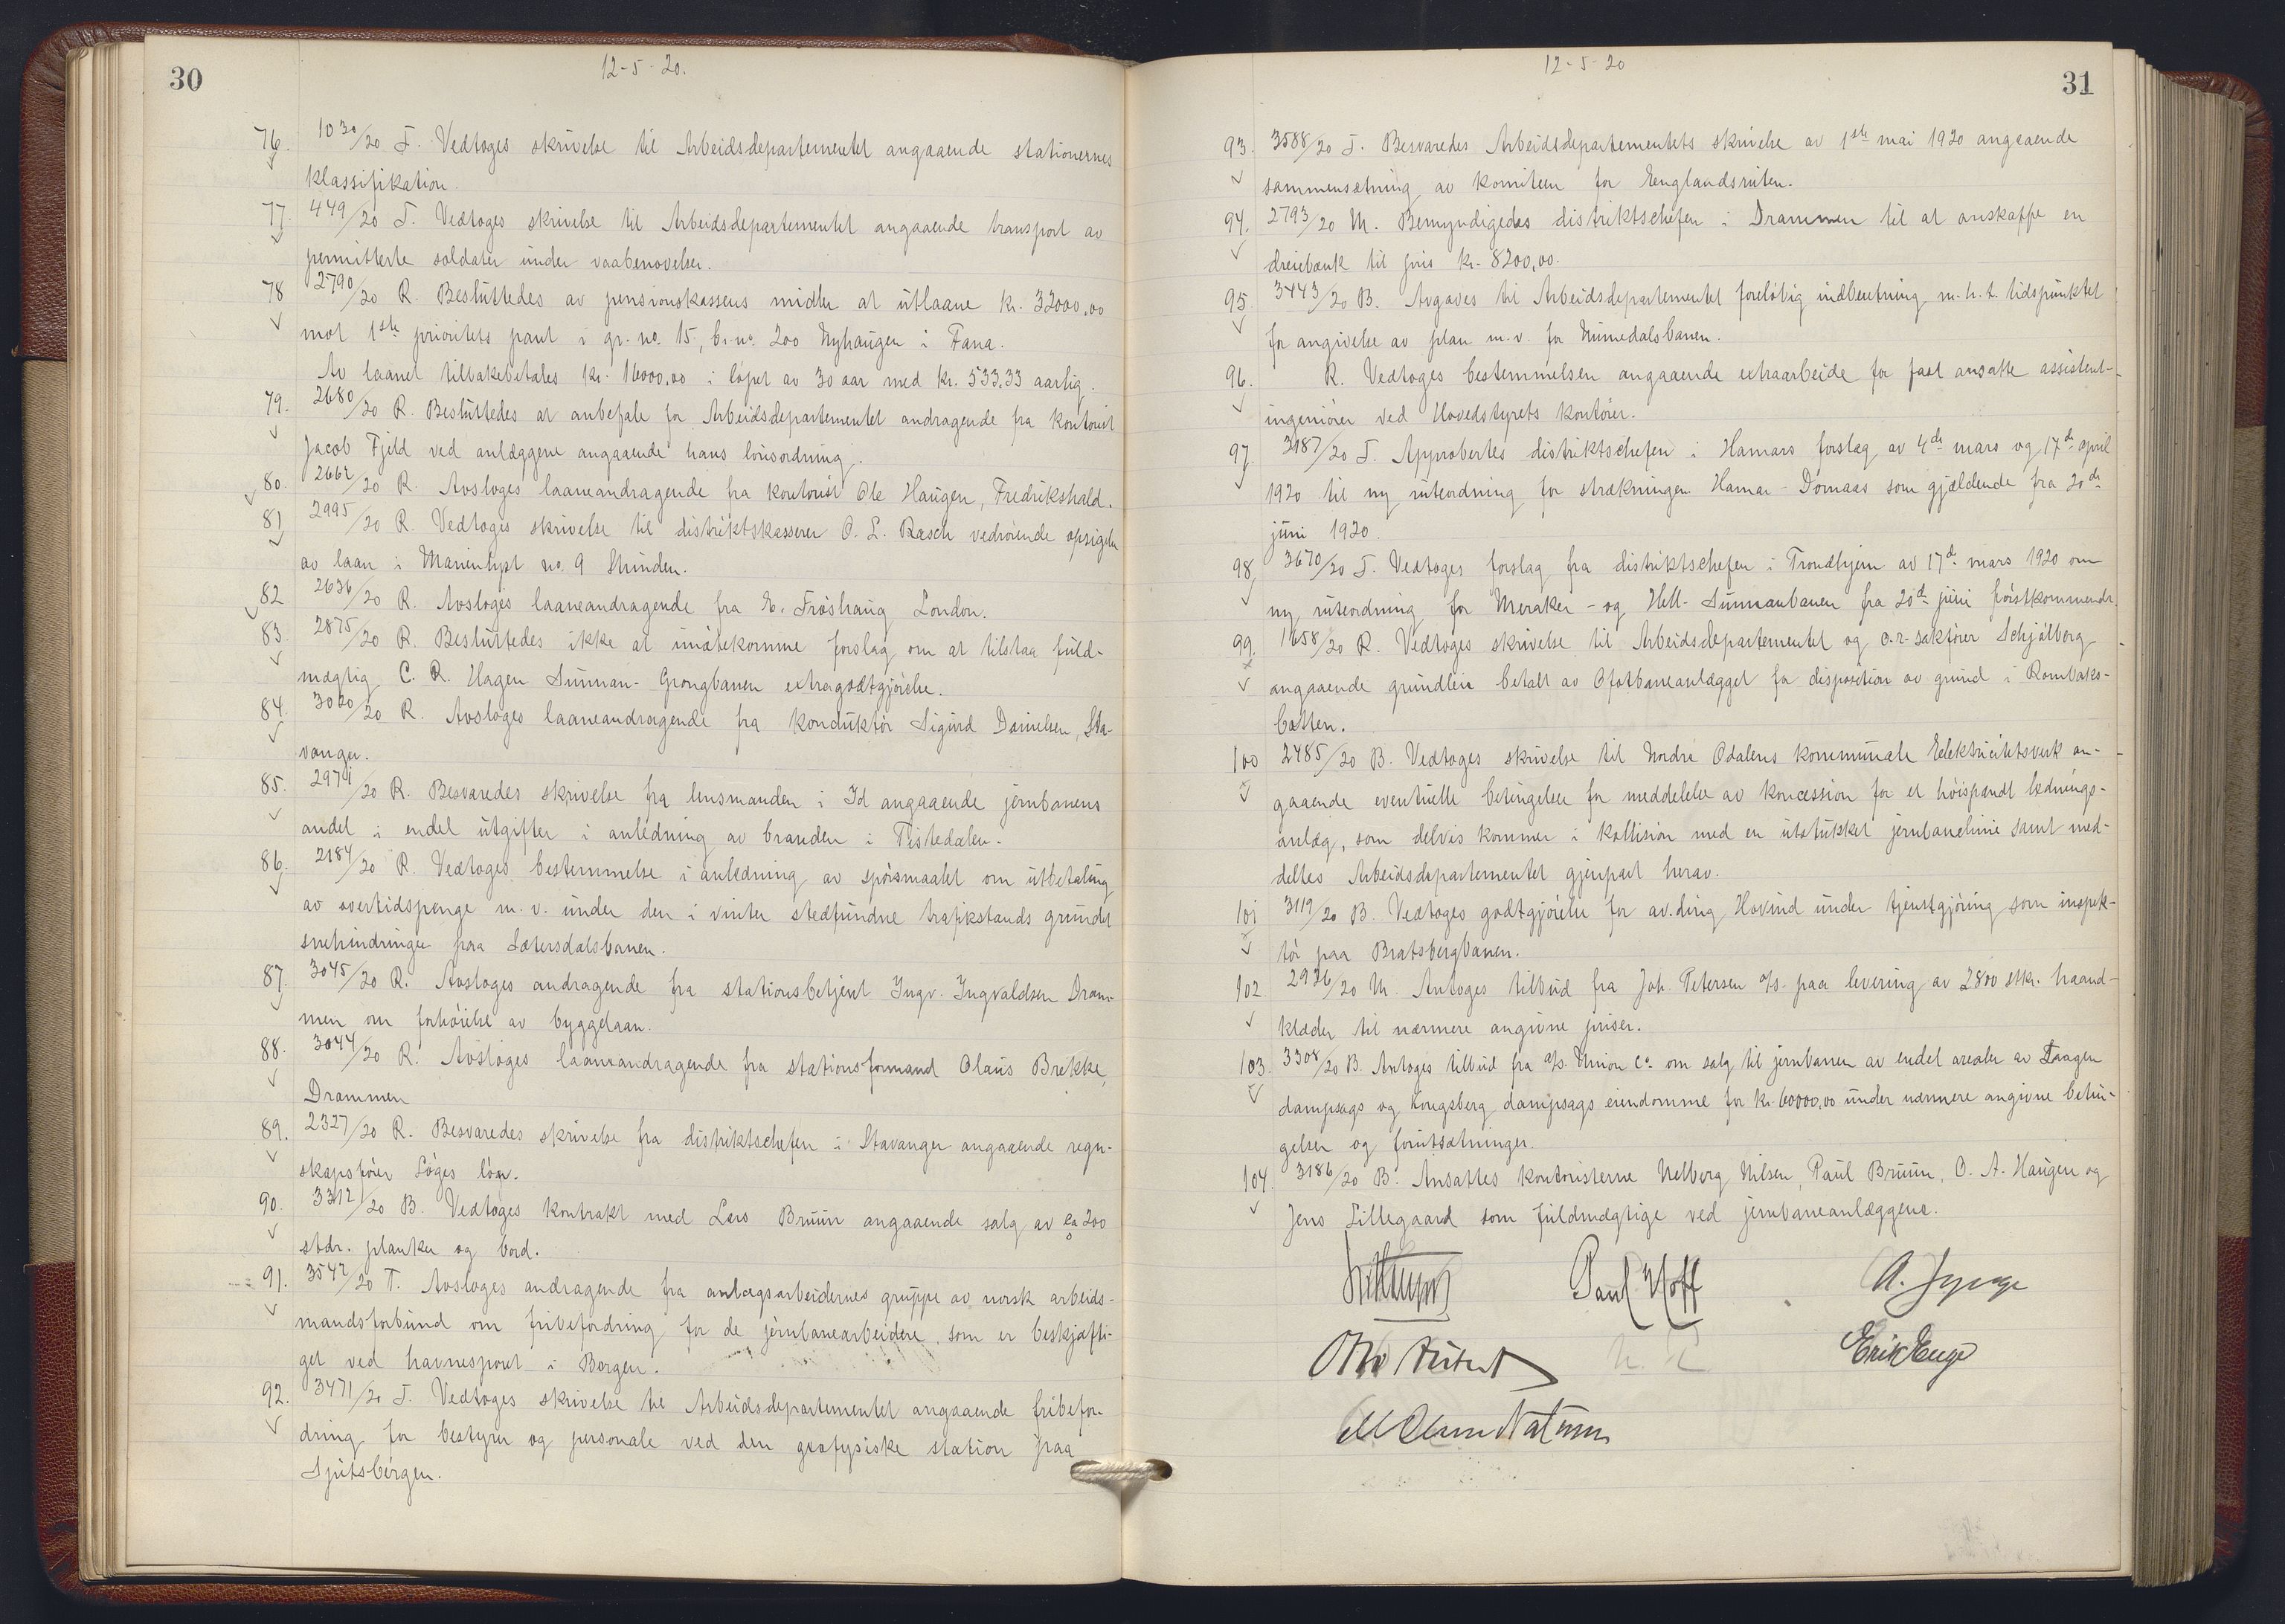 30
12-5-20.
76. 1030/20 T. Vedtoges skrivelse til Arbeidsdepartementet angaaende stationernes
klassifikation.
77. 449/20 T. Vedtoges skrivelse til Arbeidsdepartementet angaaende transport av
permitterte soldater under vaabenøvelser.
78 2790/20 R. Besluttedes av pensionskassens midler at utlaane kr. 32000,00
mot 1ste prioritets pant i gr. no. 15, br. no. 200 Nyhaugen i Fana.
Av laanet tilbakebetales kr. 16000,00 i løpet av 30 aar med kr. 533,33 aarlig.
79. 2680/20 R. Besluttedes at anbefale for Arbeidsdepartementet andragende fra kontorist
Jacob Fjeld ved anlæggene angaaende hans lønsordning.
80. 2662/20 R. Avsloges laaneandragende fra kontorist Ole Haugen, Fredrikshald.
81 2995/20 R. Vedtoges skrivelse til distriktskasserer O. L. Rasch vedrørende opsigelse
av laan i Marienlyst no. 9 Strinden.
82 2636/20 R. Avsloges laaneandragende fra E. Frøshaug London.
83. 2875/20 R. Besluttedes ikke at imøtekomme forslag om at tilstaa fuld-
mægtig C. R. Hagen Sunnan-Grongbanen extragodtgjørelse.
84. 3020/20 R. Avsloges laaneandragende fra konduktør Sigurd Danielsen, Sta-
vanger.
85. 2979/20 R. Besvaredes skrivelse fra lensmanden i Id angaaende jernbanens
andel i endel utgifter i anledning av branden i Tistedalen.
86. 2184/20 R. Vedtoges bestemmelse i anledning av spørsmaalet om utbetaling
av overtidspenge m. v. under den i vinter stedfundne trafikstands grundet
snehindringer paa Sætersdalsbanen.
87. 3045/20 R. Avsloges andragende fra stationsbetjent Ingv. Ingvaldsen Dram-
men om forhøielse av byggelaan.
88. 3044/20 R. Avsloges laaneandragende fra stationsformand Olaus Brekke,
Drammen
89. 2327/20 R. Besvaredes skrivelse fra distriktschefen i Stavanger angaaende regn-
skapsfører Løges løn.
90. 3312/20 B. Vedtoges kontrakt med Lars Bruun angaaende salg av ca 200
stdr. planker og bord.
91. 3542/20 T. Avsloges andragende fra anlægsarbeidernes gruppe av norsk arbeids-
mandsforbund om fribefordring for de jernbanearbeidere, som er beskjæfti-
get ved havnesporet i Bergen.
92. 3471/20 T. Vedtoges skrivelse til Arbeidsdepartementet angaaende fribefor-
dring for bestyrer og personale ved den geofysiske station paa
Spitsbergen.
31
12-5-20
93. 3588/20 T. Besvaredes Arbeidsdepartementets skrivelse av 1ste mai 1920 angaaende
sammensætning av komiteen for Englandsruten.
94. 2793/20 M. Bemyndigedes distriktschefen i Drammen til at anskaffe en
dreiebænk til pris kr. 8200,00.
95. 3443/20 B. Avgaves til Arbeidsdepartementet foreløbig indberetning m. h. t. tidspunktet
for angivelse av plan m. v. for Numedalsbanen.
96. R. Vedtoges bestemmelsen angaaende extraarbeide for fast ansatte assistent-
ingeniører ved Hovedstyrets kontorer.
97. 3187/20 T. Approbertes distriktschefen i Hamars forslag av 4de mars og 17de april
1920 til ny ruteordning for strækningen Hamar-Domaas som gjældende fra 20de
juni 1920.
98. 3670/20 T. Vedtoges forslag fra distriktschefen i Trondhjem av 17de mars 1920 om
ny ruteordning for Meraker- og Hell-Sunnanbanen fra 20de juni førstkommende.
99. 1658/20 R. Vedtoges skrivelse til Arbeidsdepartementet og o.r. sakfører Schjølberg
angaaende grundleie betalt av Ofotbaneanlægget for disposition av grund i Rombaks-
botten.
100 2485/20 B. Vedtoges skrivelse til Nordre Odalens kommunale Elektricitetsverk an-
gaaende eventuelle betingelser for meddelelse av koncession for et høispændt lednings-
anlæg, som delvis kommer i kollision med en utstukket jernbanelinie samt med-
deltes Arbeidsdepartementet gjenpart herav.
101 3119/20 B. Vedtoges godtgjørelse for avd.ing. Hovind under tjenestgjøring som inspek-
tør paa Bratsbergbanen.
102 2926/20 M. Antoges tilbud fra Joh. Petersen A/S. paa levering av 2800 stkr. haand-
klæder til nærmere angivne priser.
103. 3308/20 B. Antoges tilbud fra A/S. Union Co. om salg til jernbanen av endel arealer av Laagen
dampsags og Kongsberg dampsags eiendomme for kr. 60000,00 under nærmere angivne betin-
gelser og forutsætninger.
104. 3186/20 B. Ansattes kontoristerne Helberg Nilsen, Paul Bruun, O. A. Haugen og
Jens Lillegaard som fuldmægtige ved jernbaneanlæggene.
Paul Hoff
Otto Aubert